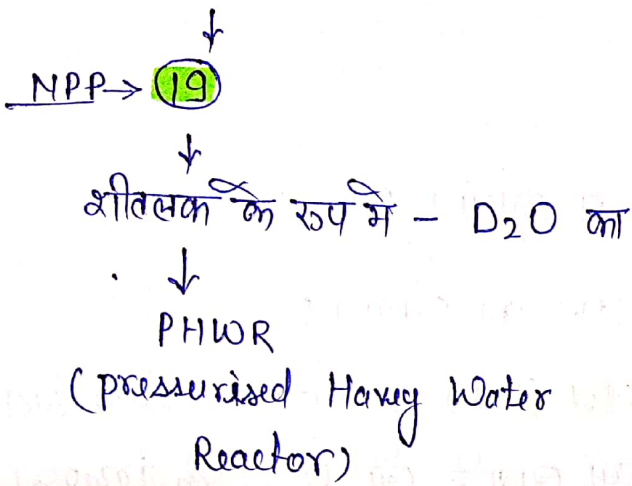 ↓
NPP→ 19
↓
शीतलक के रूप मे - D2O का
↓
PHWR
(pressurised Havey Water
Reactor)